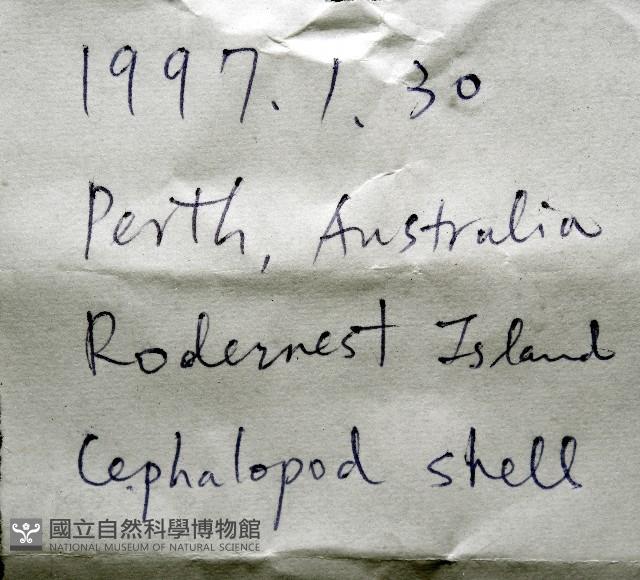 1997.1.30
Perth, Australia
Rodernest Island
Cephalopod shell
國立自然科學博物館
NATIONAL MUSEUM OF NATURAL SCIENCE